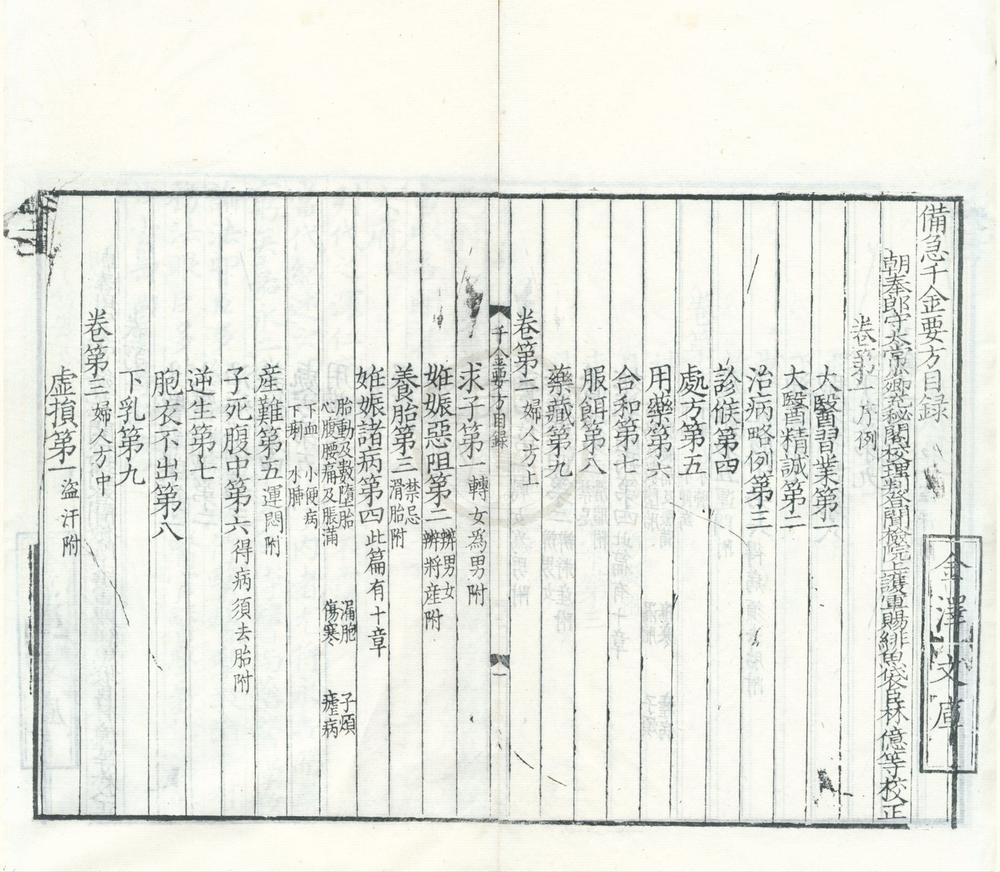 備急千金要方目録
朝奉郎守太常少卿充秘閣校理判登聞檢院上護軍賜緋魚袋臣林億等校正
卷第一序例
大醫習業第一
大醫精誠第二
治病略例第三
診候第四
處方第五
用藥第六
合和第七
服餌第八
藥藏第九
卷第二婦人方上
千金要方目録
一
求子第一轉女為男附
妊娠惡阻第二辨男女 辨將産附
養胎第三禁忌 滑胎附
妊娠諸病第四此篇有十章
胎動及數墮胎 漏胞 子煩
心腹腰痛及脹滿 傷寒 瘧病
下血 小便病
下痢 水腫
産難第五運悶附
子死腹中第六得病須去胎附
逆生第七
胞衣不出第八
下乳第九
卷第三婦人方中
虛損第一盗汗附
金澤文庫